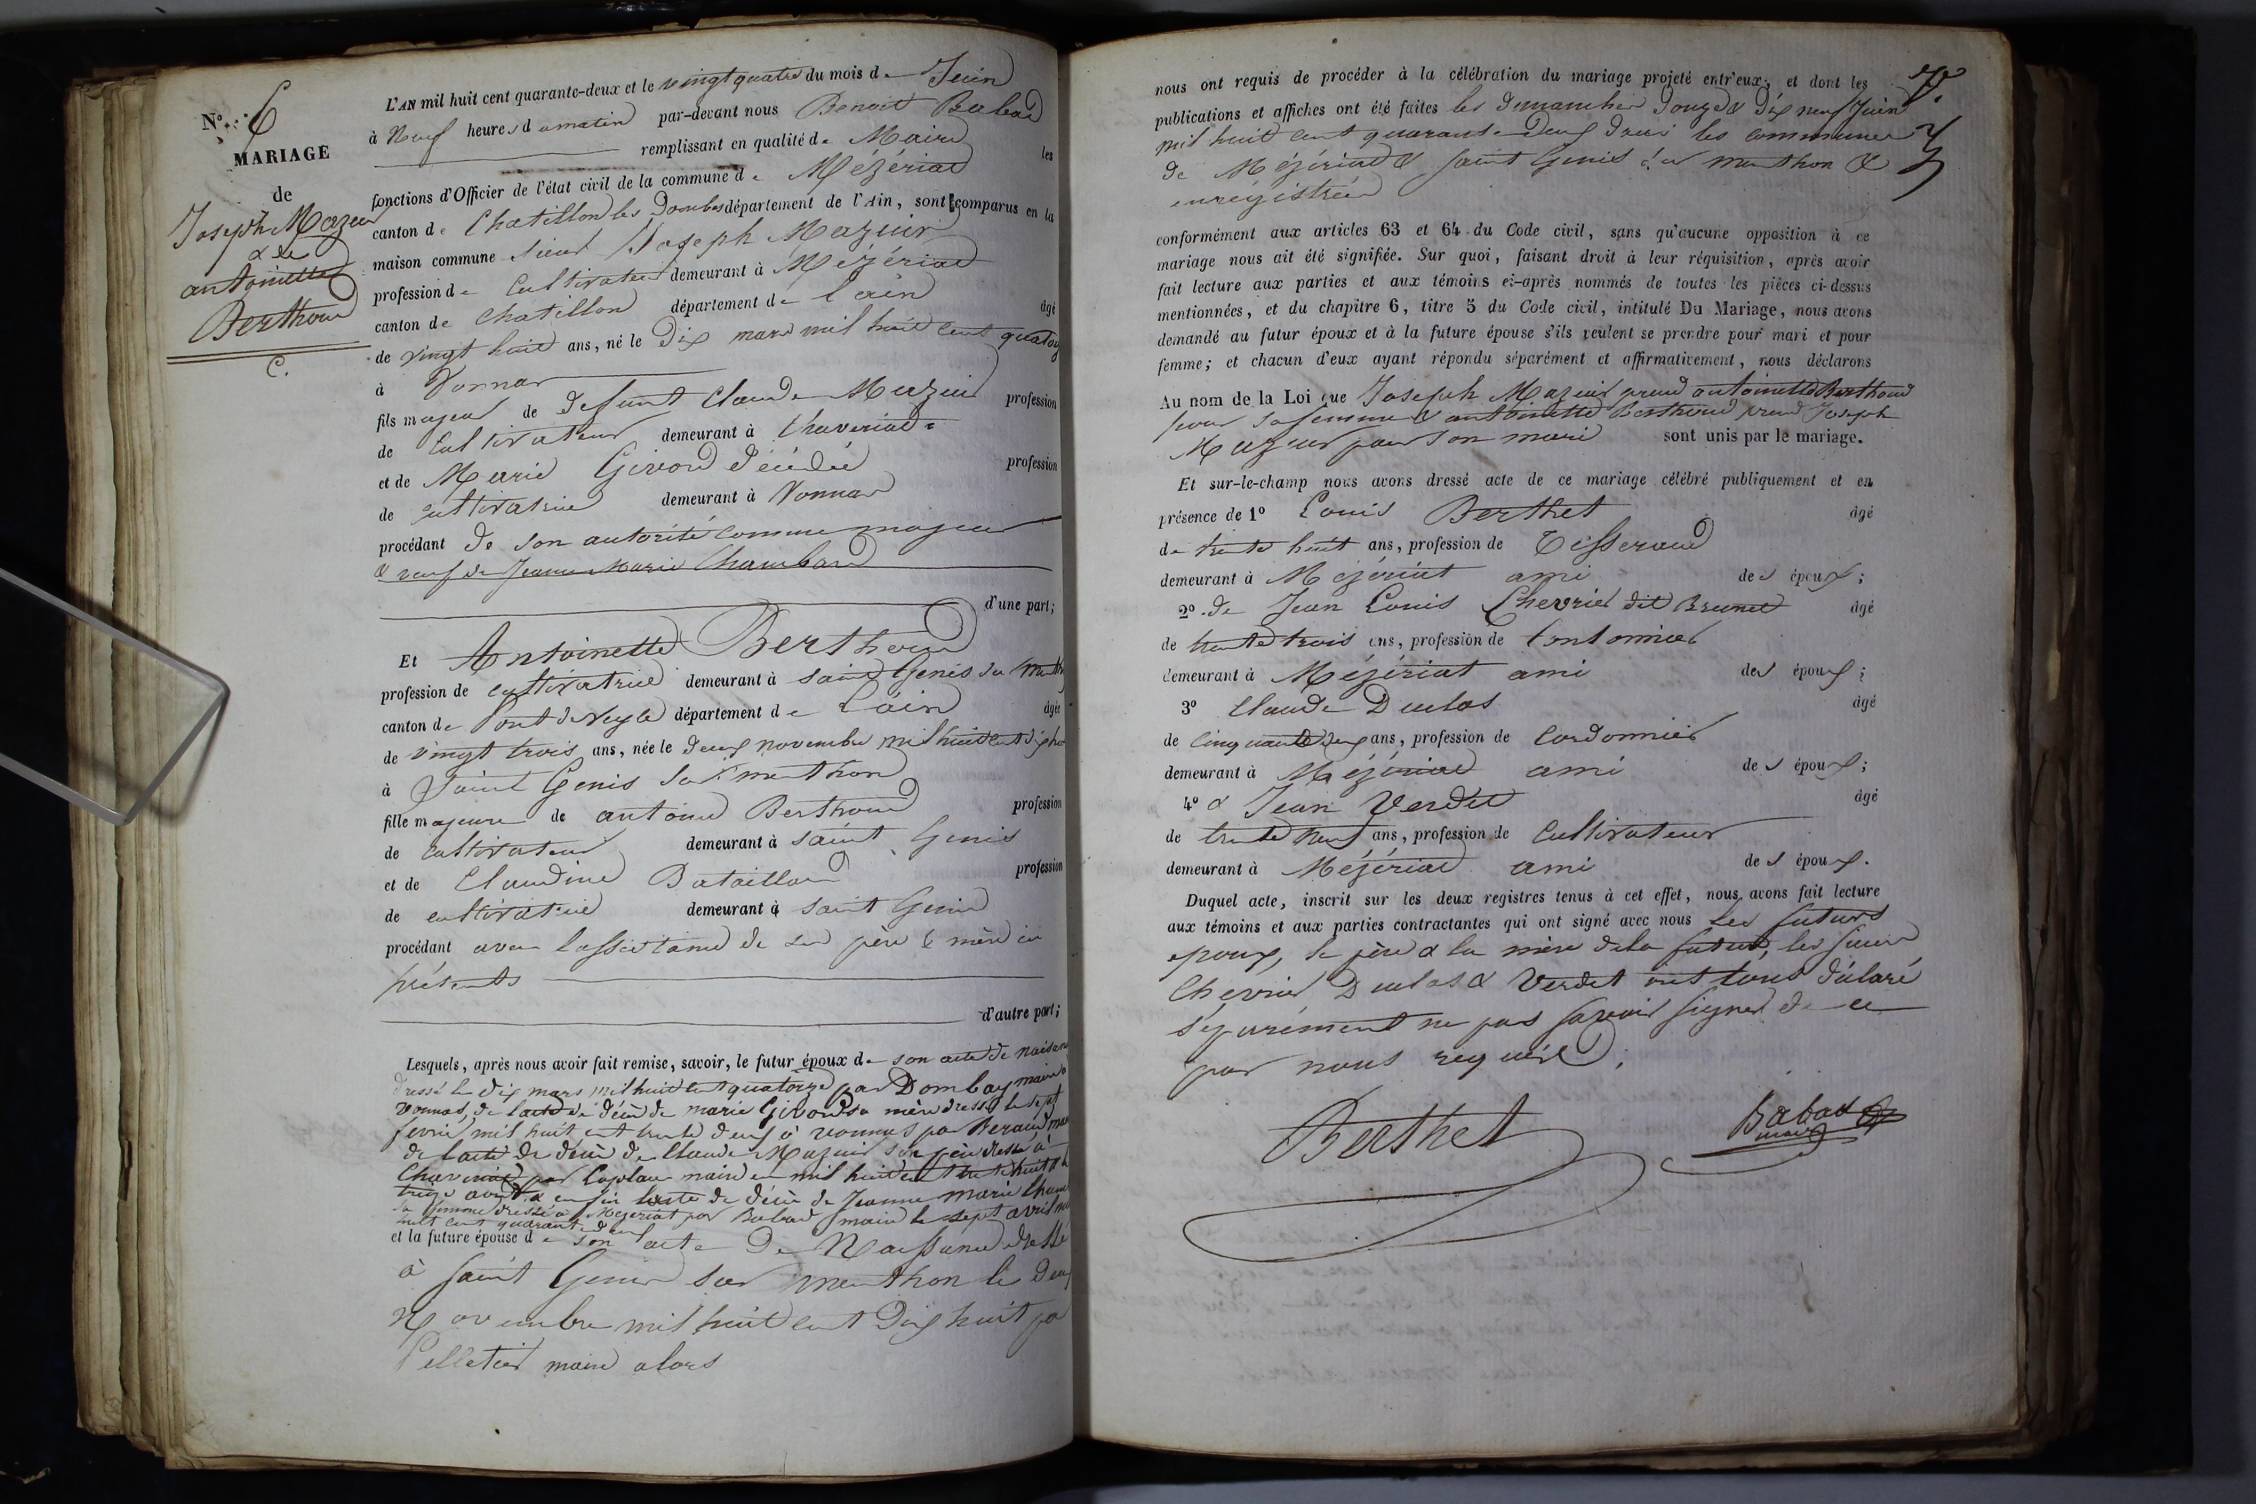 N° 6
MARIAGE
de
Joseph Mazuir
& de
antoinette
Berthoud
C.
L'AN mil huit cent quarante-deux et le vingt quatre du mois de Juin
à Neuf heures du matin par-devant nous Benoit Babad
remplissant en qualité de Maire les
fonctions d'Officier de l'état civil de la commune de Mézériat
canton de Chatillon les Dombes département de l'Ain, sont comparus en la
maison commune sieur Joseph Mazuir
profession de Cultivateur demeurant à Mézériat
canton de Chatillon département de l'ain âgé
de vingt huit ans, né le Dix mars mil huit cent quatorze
à Vonnas
fils majeur de defunt Claude Mazuir profession
de Cultivateur demeurant à Chaveriat
et de Marie Givord décédée profession
de cultivatrice demeurant à Vonnas
procédant de son autorité comme majeur
& veuf de Jeanne Marie Chambard
d'une part;
Et Antoinette Berthoud
profession de cultivatrice demeurant à saint Genis sur Menthon
canton de Pont de Veyle département de l'ain âgée
de vingt trois ans, née le deux novembre mil huit cent dix huit
à Saint Genis sur menthon
fille majeure de antoine Berthoud profession
de cultivateur demeurant à saint Genis
et de Claudine Bataillard profession
de cultivatrice demeurant à saint Genis
procédant avec l'assistance de ses père & mère ici
présents
d'autre part;
Lesquels, après nous avoir fait remise, savoir, le futur époux de son acte de naissance
dressé le dix mars mil huit cent quatorze par Dombey maire à
Vonnas, de l'acte de décès de marie Givord sa mère dressé le sept
fevrier mil huit cent trente deux à vonnas par Beraud maire
de l'acte de décès de Claude Mazuir son père dressé à
Chaveriat par maire en mil huit cent trente huit le
treize avril & enfin l'acte de décès de Jeanne marie Chambard
sa femme dressé à Mezeriat par Babad maire le sept avril mil
huit cent quarante deux
et la future épouse de son acte De Naissance dressé
à saint Genis sur menthon le deux
Novembre mil huit cent Dix huit par
Pelletier maire alors
nous ont requis de procéder à la célébration du mariage projeté entr'eux, et dont les
publications et affiches ont été faites les dimanches douze & dix neuf Juin
mil huit cent quarante Deux dans les communes
de Mézériat & saint Genis sur menthon &
enregistrées
conformément aux articles 63 et 64 du Code civil, sans qu'aucune opposition à ce
mariage nous ait été signifiée. Sur quoi, faisant droit à leur réquisition, après avoir
fait lecture aux parties et aux témoins ci-après nommés de toutes les pièces ci-dessus
mentionnées, et du chapitre 6, titre 5 du Code civil, intitulé Du Mariage, nous avons
demandé au futur époux et à la future épouse s'ils veulent se prendre pour mari et pour
femme; et chacun d'eux ayant répondu séparément et affirmativement, nous déclarons
Au nom de la Loi que Joseph Mazuir prend antoinette Berthoud
pour sa femme & antoinette Berthoud prend Joseph
Mazuir pour son mari sont unis par le mariage.
Et sur-le-champ nous avons dressé acte de ce mariage célébré publiquement et en
présence de 1° Louis Berthet âgé
de trente huit ans, profession de Tisserand
demeurant à Mézériat ami des époux;
2° de Jean Louis Chevrier dit Brunet âgé
de trente trois ans, profession de
demeurant à Mézériat ami des époux;
3° Claude Duclos âgé
de cinquante deux ans, profession de Cordonnier
demeurant à Mézériat ami des époux;
4° & Jean Verdet âgé
de trente neuf ans, profession de Cultivateur
demeurant à Mézériat ami des époux.
Duquel acte, inscrit sur les deux registres tenus à cet effet, nous avons fait lecture
aux témoins et aux parties contractantes qui ont signé avec nous Les futurs
epoux, le père & la mère de la future, les sieurs
Chevrier Duclos & Verdet ont tous déclaré
séparément ne pas savoir signer de ce
par nous requis;
Berthet
Babad
maire